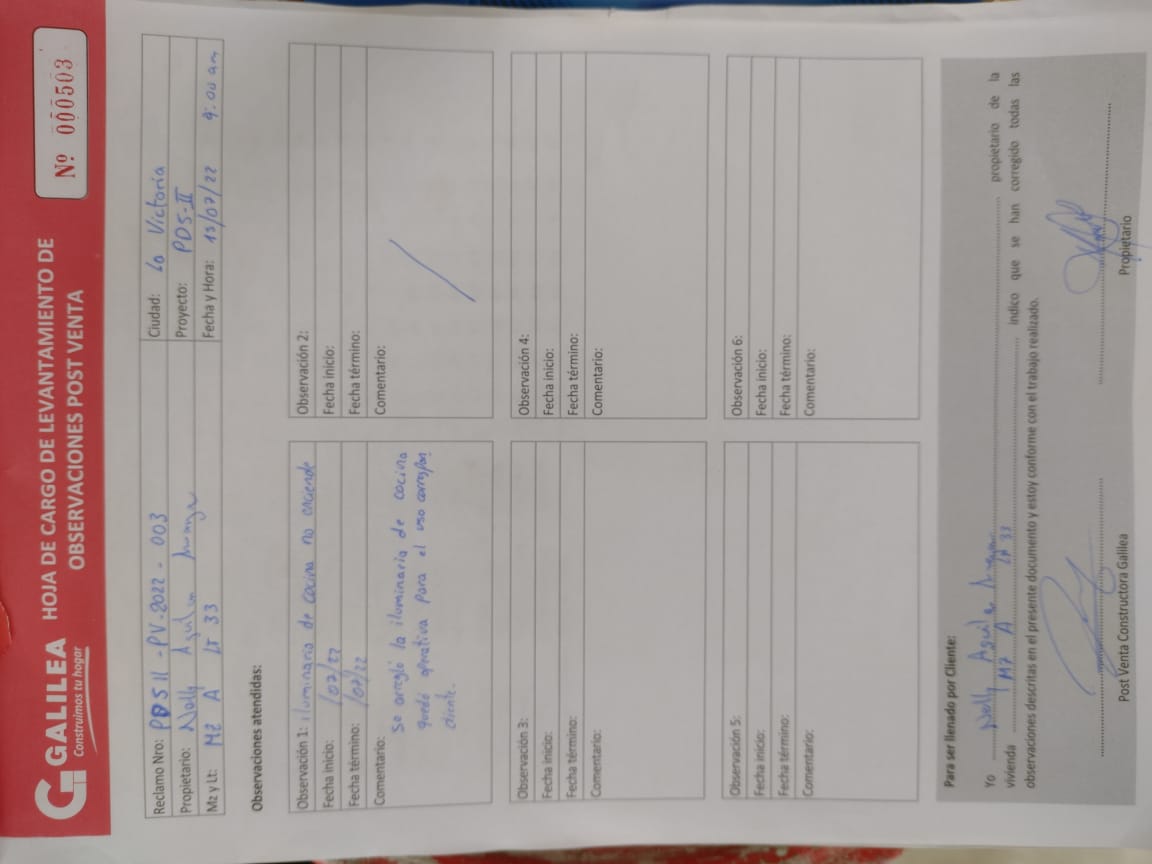 GALILEA
Construimos tu hogar
HOJA DE CARGO DE LEVANTAMIENTO DE
OBSERVACIONES POST VENTA
Nº 000503
Reclamo Nro: PDS II - PV-2022 - 003 Ciudad: La Victoria
Propietario: Nelly Aguilar Proyecto: PDS-II
Mz y Lt: Mz A LT 33 Fecha y Hora: 13/07/22 9:00 am
Observaciones atendidas:
Observación 1: iluminaria de cocina no enciende
Fecha inicio: /07/22
Fecha término: /07/22
Comentario:
Se arregló la iluminaria de cocina
quedó operativa para el uso correspon
diente.
Observación 2:
Fecha inicio:
Fecha término:
Comentario:
Observación 3:
Fecha inicio:
Fecha término:
Comentario:
Observación 4:
Fecha inicio:
Fecha término:
Comentario:
Observación 5:
Fecha inicio:
Fecha término:
Comentario:
Observación 6:
Fecha inicio:
Fecha término:
Comentario:
Para ser llenado por Cliente:
Yo Nelly Aguilar propietario de la
vivienda Mz A LT 33 indico que se han corregido todas las
observaciones descritas en el presente documento y estoy conforme con el trabajo realizado.
Post Venta Constructora Galilea
Propietario